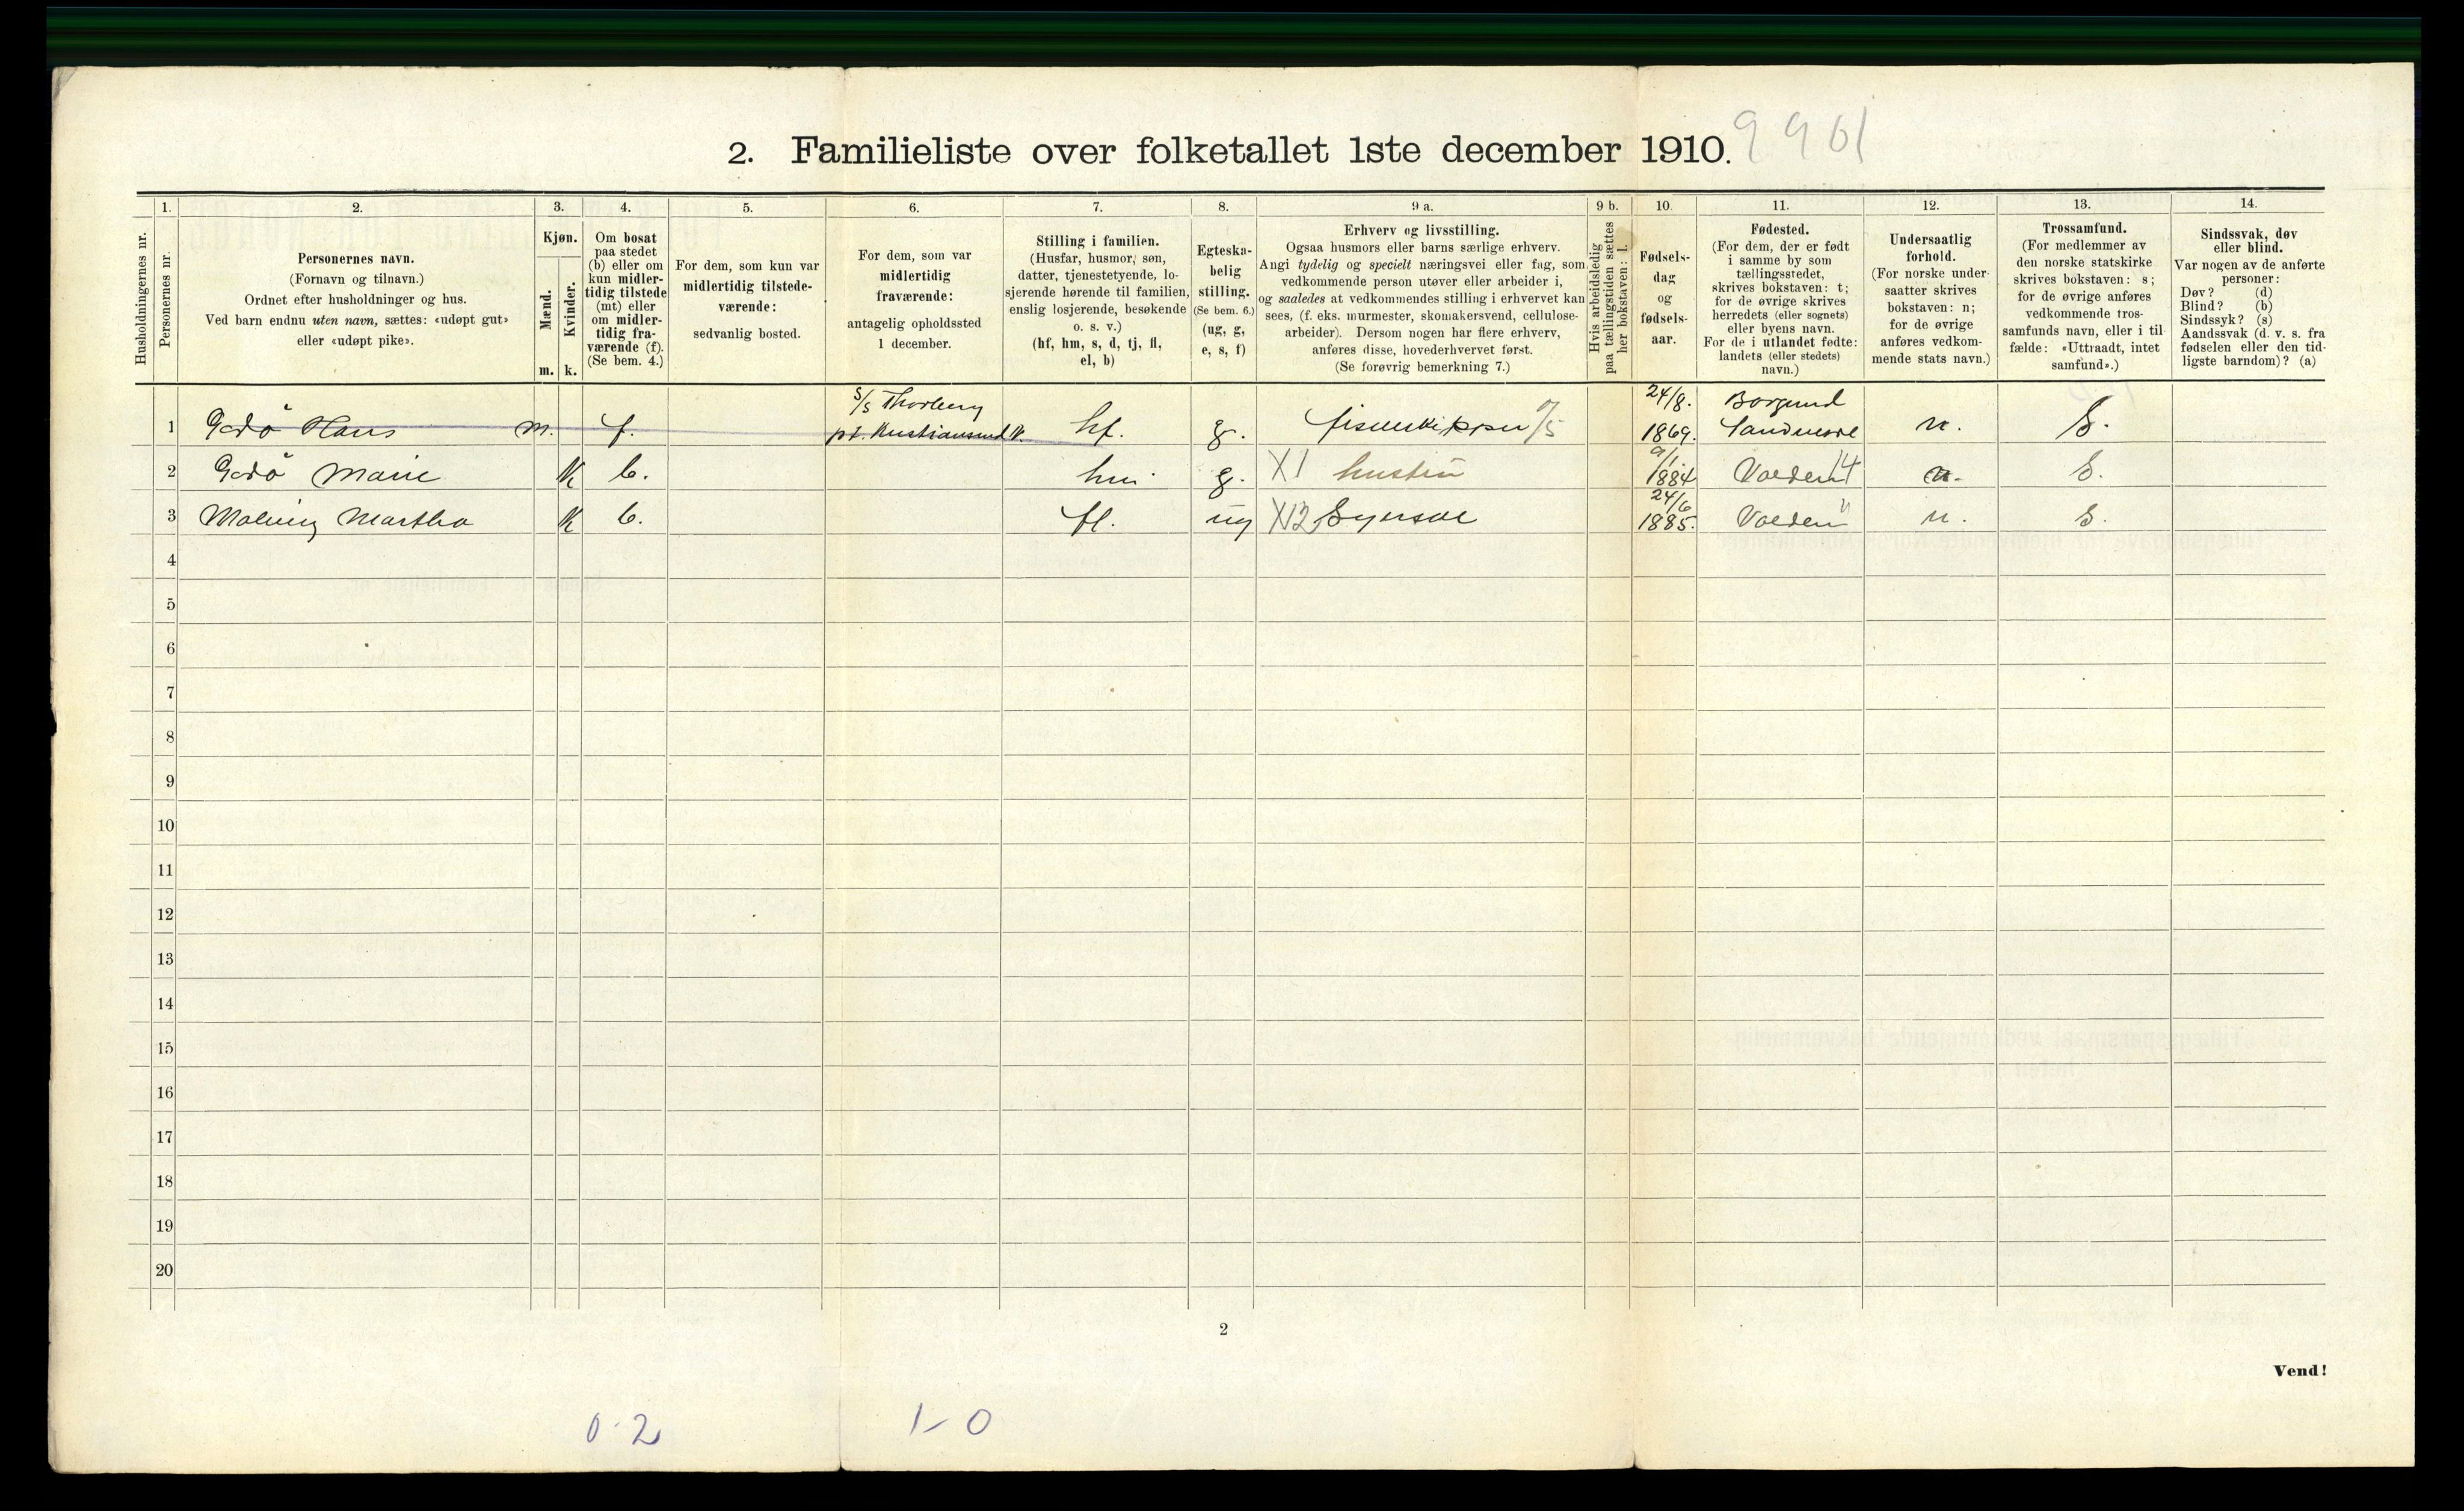 2. Familieliste over folketallet 1ste december 1910. 9961
Husholdningernes nr.
1.
Personernes nr.
2.
Personernes navn.
(Fornavn og tilnavn.)
Ordnet efter husholdninger og hus.
Ved barn endnu uten navn, sættes: «udøpt gut»
eller «udøpt pike».
3.
Kjøn.
Mænd.
Kvinder.
m. k.
4.
Om bosat
paa stedet
(b) eller om
kun midler-
tidig tilstede
(mt) eller
om midler-
tidig fra-
værende (f).
(Se bem. 4.)
5.
For dem, som kun var
midlertidig tilstede-
værende:
sedvanlig bosted.
6.
For dem, som var
midlertidig
fraværende:
antagelig opholdssted
1 december.
7.
Stilling i familien.
(Husfar, husmor, søn,
datter, tjenestetyende, lo-
sjerende hørende til familien,
enslig losjerende, besøkende
o. s. v.)
(hf, hm, s, d, tj, fl,
el, b)
8.
Egteska-
belig
stilling.
(Se bem. 6.)
(ug, g,
e, s, f)
9 a.
Erhverv og livsstilling.
Ogsaa husmors eller barns særlige erhverv.
Angi tydelig og specielt næringsvei eller fag, som
vedkommende person utøver eller arbeider i,
og saaledes at vedkommendes stilling i erhvervet kan
sees, (f. eks. murmester, skomakersvend, cellulose-
arbeider). Dersom nogen har flere erhverv,
anføres disse, hovederhvervet først.
(Se forøvrig bemerkning 7.)
9 b.
Hvis arbeidsledig
paa tællingstiden sættes
her bokstaven: l.
10.
Fødsels-
dag
og
fødsels-
aar.
11.
Fødested.
(For dem, der er født
i samme by som
tællingsstedet,
skrives bokstaven: t;
for de øvrige skrives
herredets (eller sognets)
eller byens navn.
For de i utlandet fødte:
landets (eller stedets)
navn.)
12.
Undersaatlig
forhold.
(For norske under-
saatter skrives
bokstaven: n;
for de øvrige
anføres vedkom-
mende stats navn.)
13.
Trossamfund.
(For medlemmer av
den norske statskirke
skrives bokstaven: s;
for de øvrige anføres
vedkommende tros-
samfunds navn, eller i til-
fælde: «Uttraadt, intet
samfund».)
14.
Sindssvak, døv
eller blind.
Var nogen av de anførte
personer:
Døv? (d)
Blind? (b)
Sindssyk? (s)
Aandssvak (d. v. s. fra
fødselen eller den tid-
ligste barndom)? (a)
S/S Thorberg 24/8. Borgund
1 Godö Hans m. f. pt. Kristiansund N. hf. g. fiskeskipper 1869. Søndmøre n. S.
9/1
2 Godö Marie K b. hm g. X1 hustru 1884 Volden 14 n. S.
24/6
3 Molvær Martha K b. fl. ug X12 Syerske 1885. Volden " n. S.
4
5
6
7
8
9
10
11
12
13
14
15
16
17
18
19
20
2
Vend!
0-2 1-0